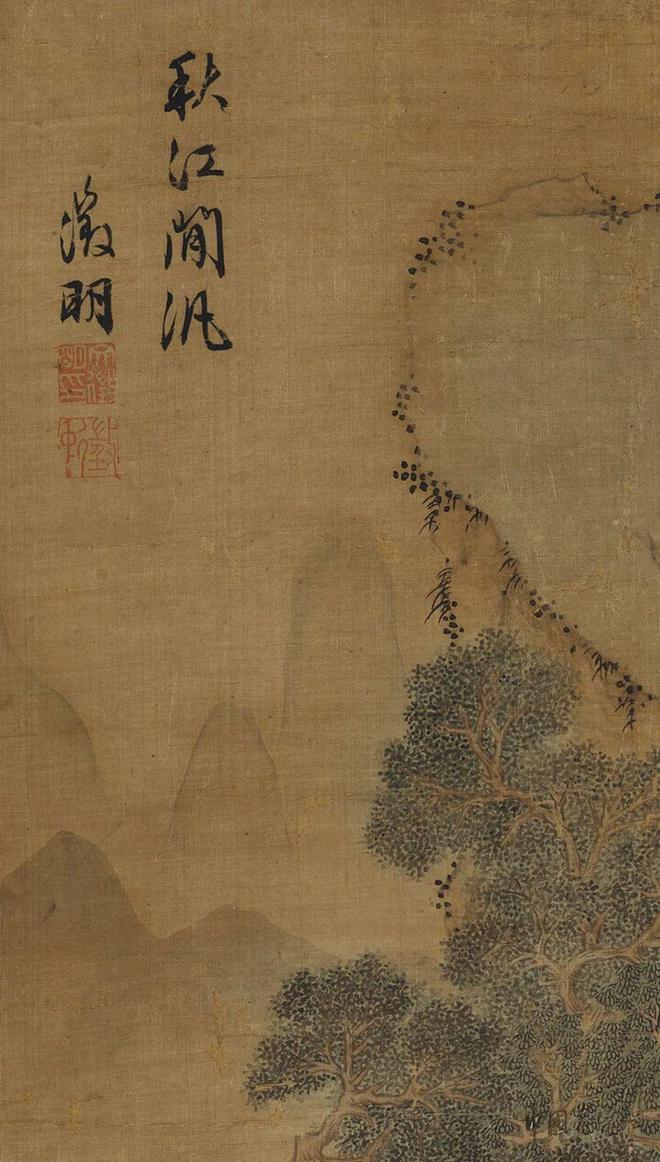 秋江閒汎
徵明